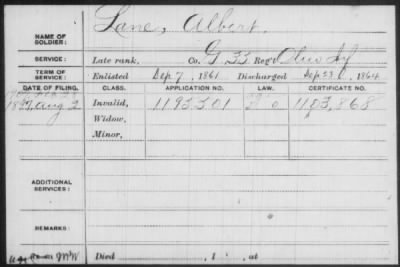 NAME OF SOLDIER: Lane, Albert.
SERVICE: Late rank, Co. G 33 Reg't Ohio Inf
TERM OF SERVICE: Enlisted Sep 7, 1861 Discharged Sep 23, 1864
DATE OF FILING. CLASS. APPLICATION NO. LAW. CERTIFICATE NO.
1897, Aug 2 Invalid, 1193501 1183,868
Widow,
Minor,
ADDITIONAL SERVICES:
REMARKS:
Died , 1 , at